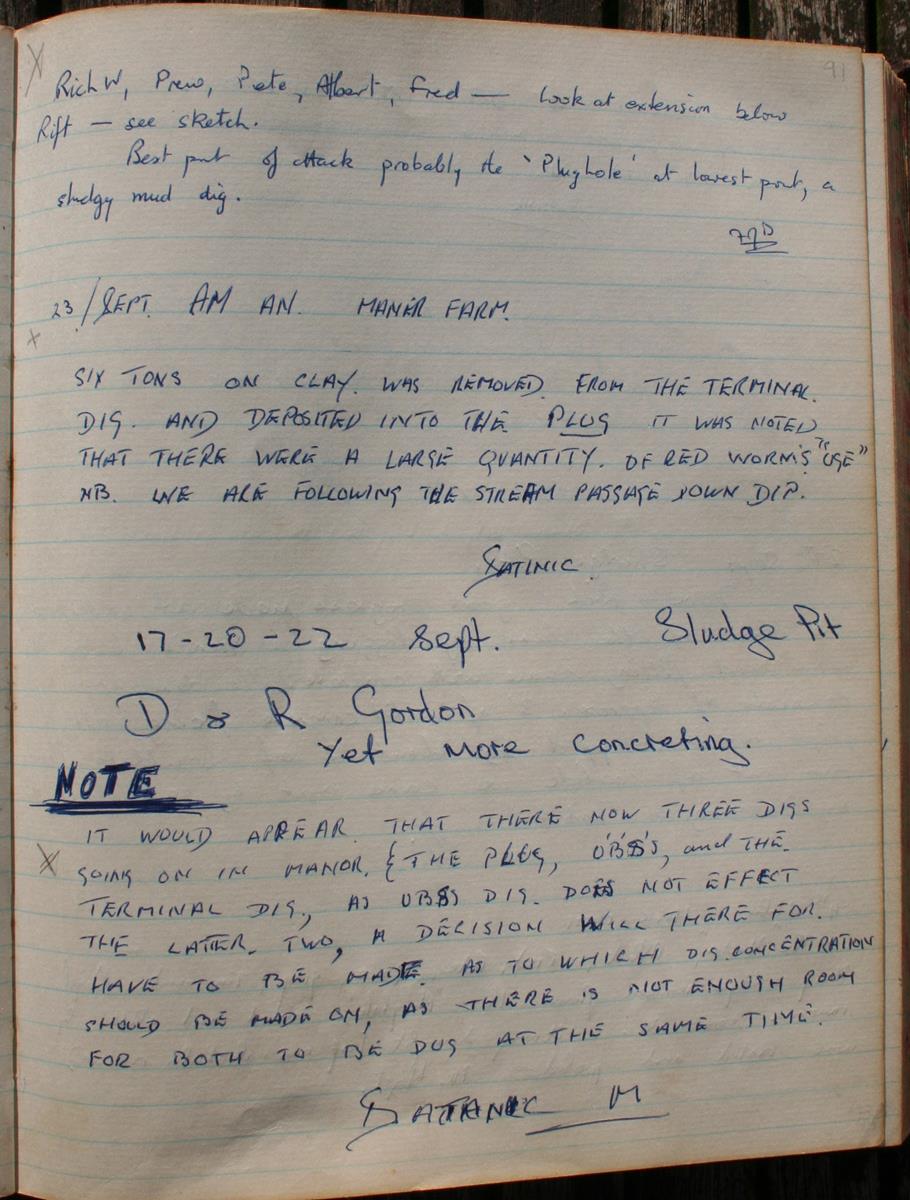 91
Rich W, Prew, Pete, Albert, Fred — Look at extension below
Rift — see sketch.
Best point of attack probably the 'Plughole' at lowest point, a
sludgy mud dig.
23/SEPT. AM AN. MANOR FARM.
SIX TONS ON CLAY. WAS REMOVED. FROM THE TERMINAL.
DIG. AND DEPOSITED INTO THE PLUG IT WAS NOTED
THAT THERE WERE A LARGE QUANTITY. OF RED WORMS
NB. WE ARE FOLLOWING THE STREAM PASSAGE DOWN DIP.
SATINIC.
17-20-22 Sept. Sludge Pit
D & R Gordon
Yet more concreting.
NOTE
IT WOULD APPEAR THAT THERE NOW THREE DIGS
GOING ON IN MANOR. { THE PLUG, UBSS'S, and THE
TERMINAL DIG., AS UBSS DIG. DOES NOT EFFECT
THE LATTER TWO, A DECISION WILL THERE FOR.
HAVE TO BE MADE. AS TO WHICH DIG CONCENTRATION
SHOULD BE MADE ON, AS THERE IS NOT ENOUGH ROOM
FOR BOTH TO BE DUG AT THE SAME TIME.
SATANIC M